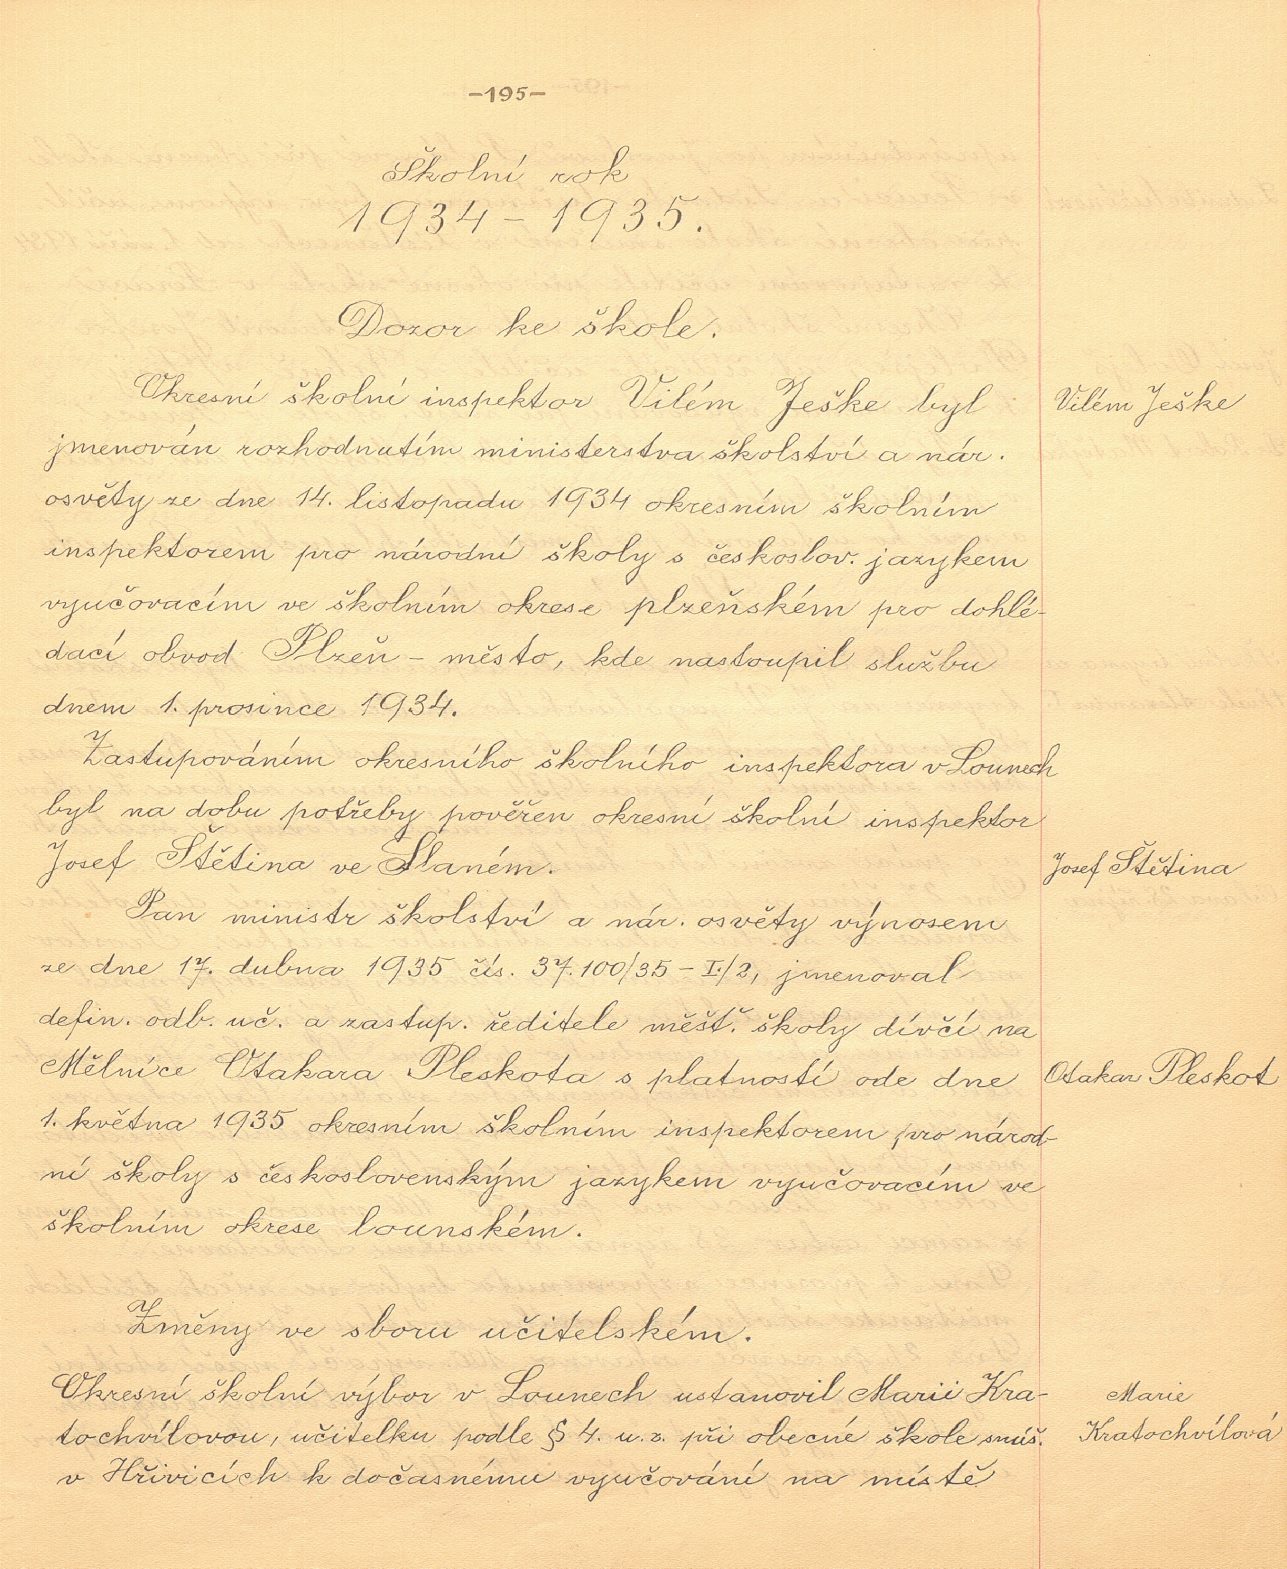 -195-
Školní rok
1934 - 1935.
Dozor ke škole.
Okresní školní inspektor Vilém Ješke byl
Vilém Ješke
jmenován rozhodnutím ministerstva školství a nár.
osvěty ze dne 14. listopadu 1934 okresním školním
inspektorem pro národní školy s českoslov. jazykem
vyučovacím ve školním okrese plzeňském pro dohlé-
dací obvod Plzeň - město, kde nastoupil službu
dnem 1. prosince 1934.
Zastupováním okresního školního inspektora v Lounech
byl na dobu potřeby pověřen okresní školní inspektor
Josef Štětina ve Slaném.
Josef Štětina
Pan ministr školství a nár. osvěty výnosem
ze dne 17. dubna 1935 čís. 37.100/35 - I./2, jmenoval
defin. odb. uč. a zastup. ředitele měšť. školy dívčí na
Mělníce Otakara Pleskota s platností ode dne
Otakar Pleskot
1. května 1935 okresním školním inspektorem pro národ-
ní školy s československým jazykem vyučovacím ve
školním okrese lounském.
Změny ve sboru učitelském.
Okresní školní výbor v Lounech ustanovil Marii Kra-
Marie
tochvílovou, učitelku podle § 4. u. z. při obecné škole smíš.
Kratochvílová
v Hřivicích k dočasnému vyučování na místě